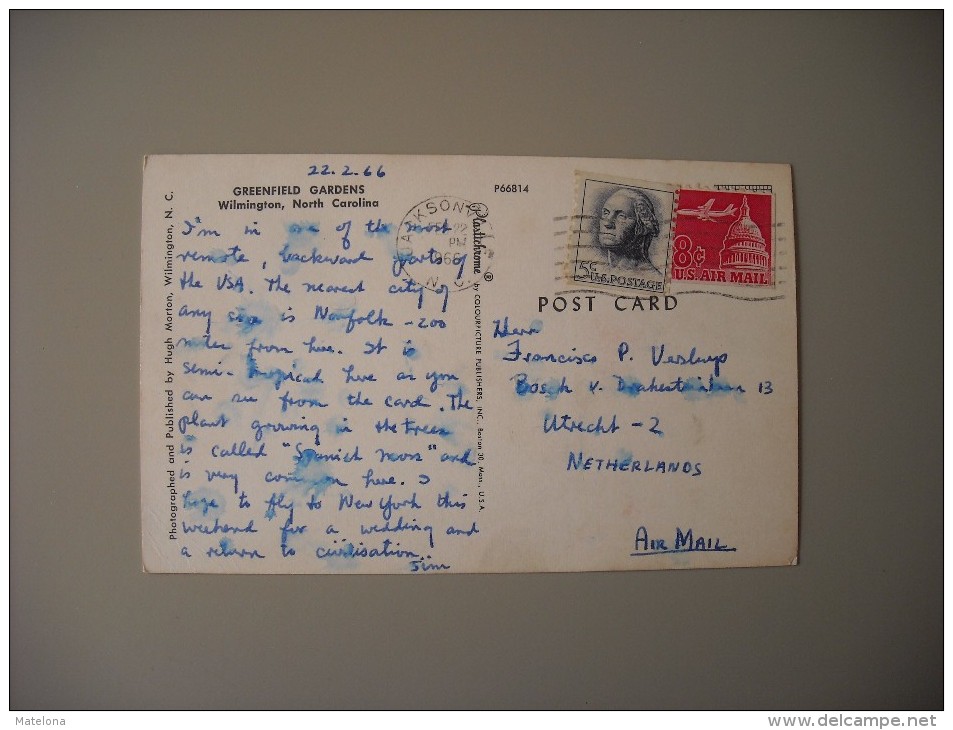 22.2.66
GREENFIELD GARDENS
Wilmington, North Carolina
I'm in one of the most
remote, backward parts of
the USA. The nearest city of
any size is Norfolk - 200
miles from here. It is
semi-tropical here as you
can see from the card. The
plant growing in the trees
is called "Spanish moss" and
is very common here. I
hope to fly to New York this
weekend for a wedding and
a return to civilisation.
Jim
Photographed and Published by Hugh Morton, Wilmington, N. C.
P66814
Plastichrome® by COLOURPICTURE PUBLISHERS, INC., Boston 30, Mass., U.S.A.
JACKSONV
22
PM
1966
N. C.
5¢ U.S. POSTAGE
8¢
U.S. AIR MAIL
POST CARD
Herr
Francisco P.
Bosch v. 13
Utrecht - 2
NETHERLANDS
AIR MAIL
Matelona
http://www.delcampe.net